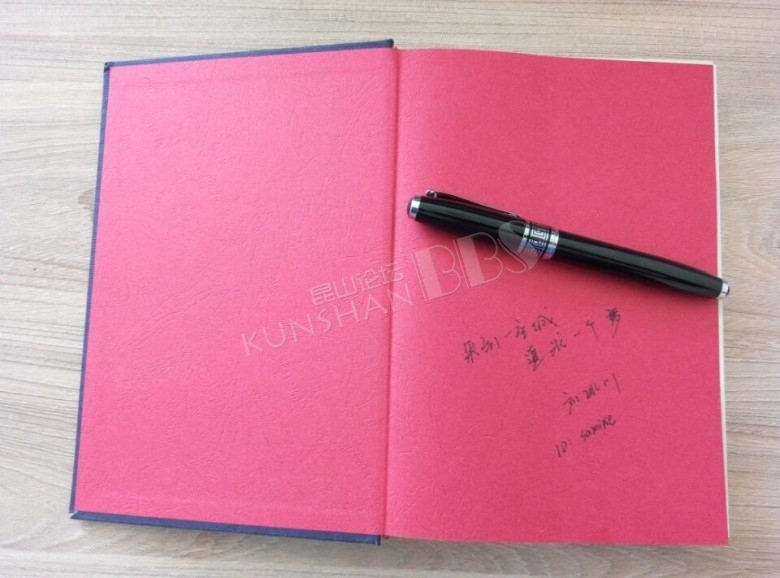 昆山论坛
KUNSHAN BBS
来到一座城
追求一个梦
ID: sanike